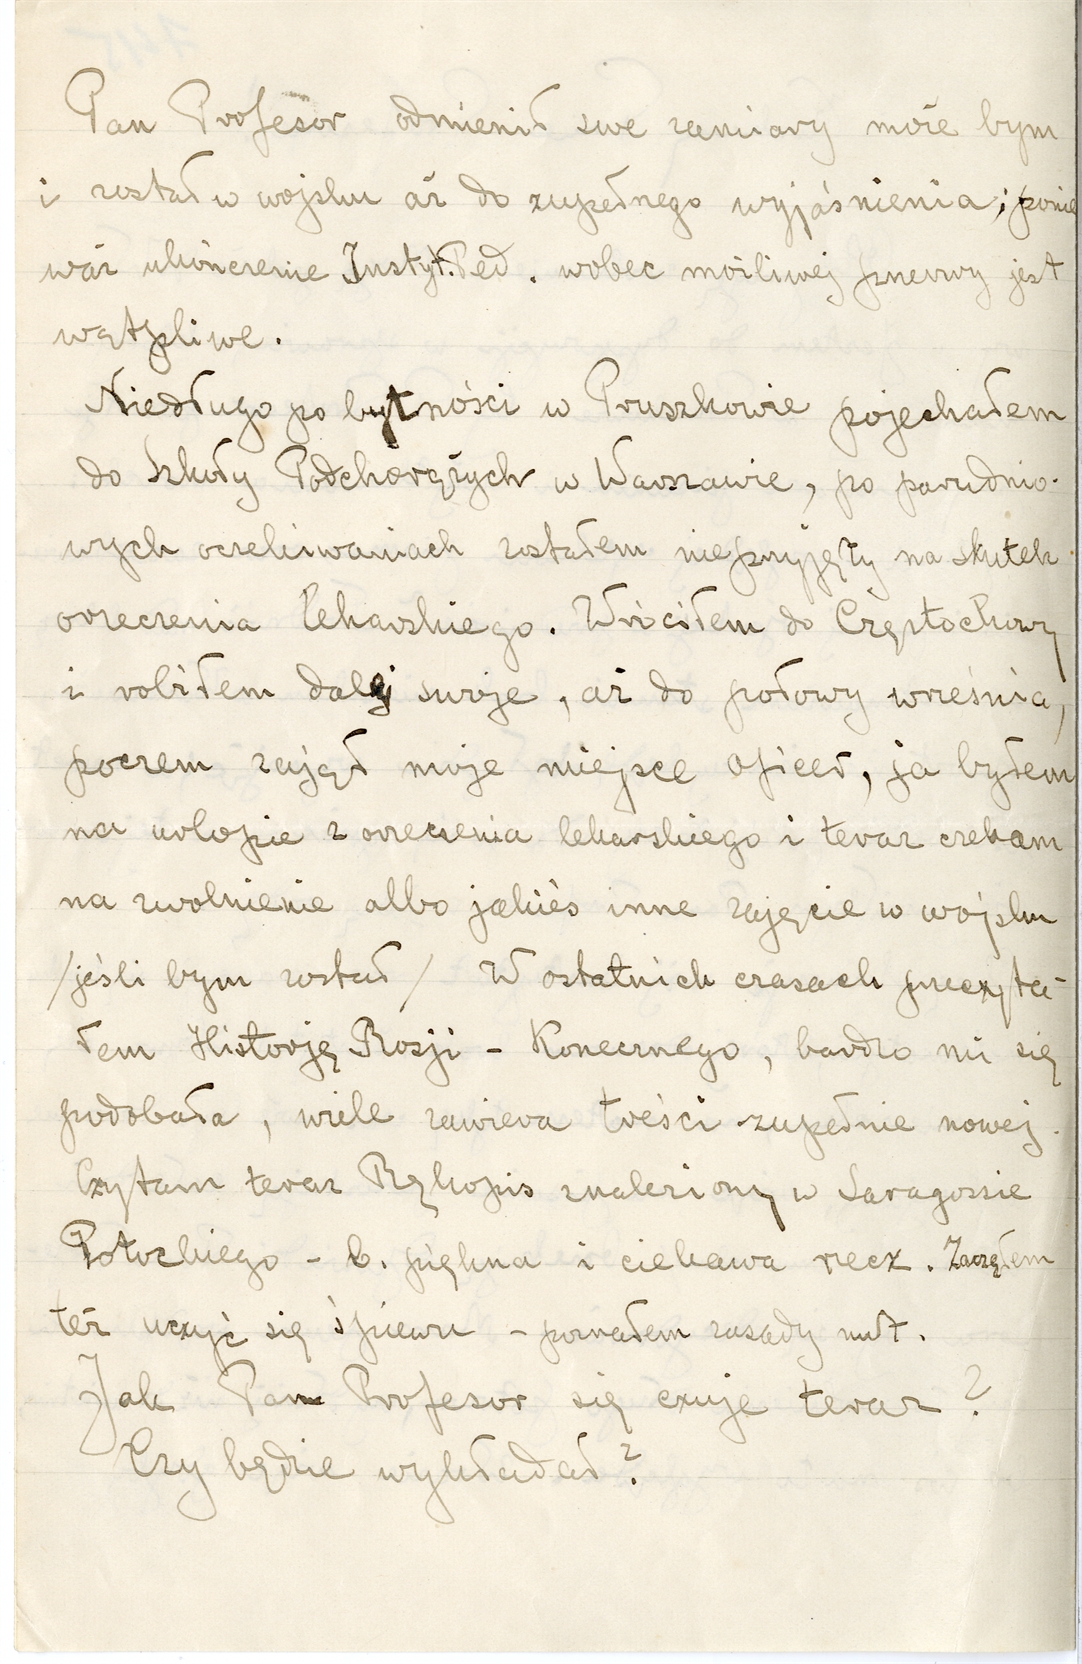 Pan Profesor odmienił swe zamiary może bym
i został w wojsku aż do zupełnego wyjaśnienia, i ponie
waż ukończenie Instyt. Ped. wobec możliwej przerwy jest
wątpliwe.
Niedługo po bytności w Pruszkowie pojechałem
do Szkoły Podchorążych w Warszawie, po parudnio-
wych oczekiwaniach zostałem nieprzyjęty na skutek
orzeczenia lekarskiego. Wróciłem do Częstochowy
i robiłem dalej swoje, aż do połowy września,
poczem zajął moje miejsce oficer, ja byłem
na urlopie z orzeczenia lekarskiego i teraz czekam
na zwolnienie albo jakieś inne zajęcie w wojsku
/jeśli bym został/ W ostatnich czasach przeczyta-
łem Historję Rosji - Konecznego, bardzo mi się
podobała, wiele zawiera treści zupełnie nowej.
Czytam teraz Rękopis znaleziony w Saragossie
Potockiego - b. piękna i ciekawa rzecz. Zacząłem
też uczyć się śpiewu - poznałem zasady nut.
Jak Pan Profesor się czuje teraz?
Czy będzie wykładał?